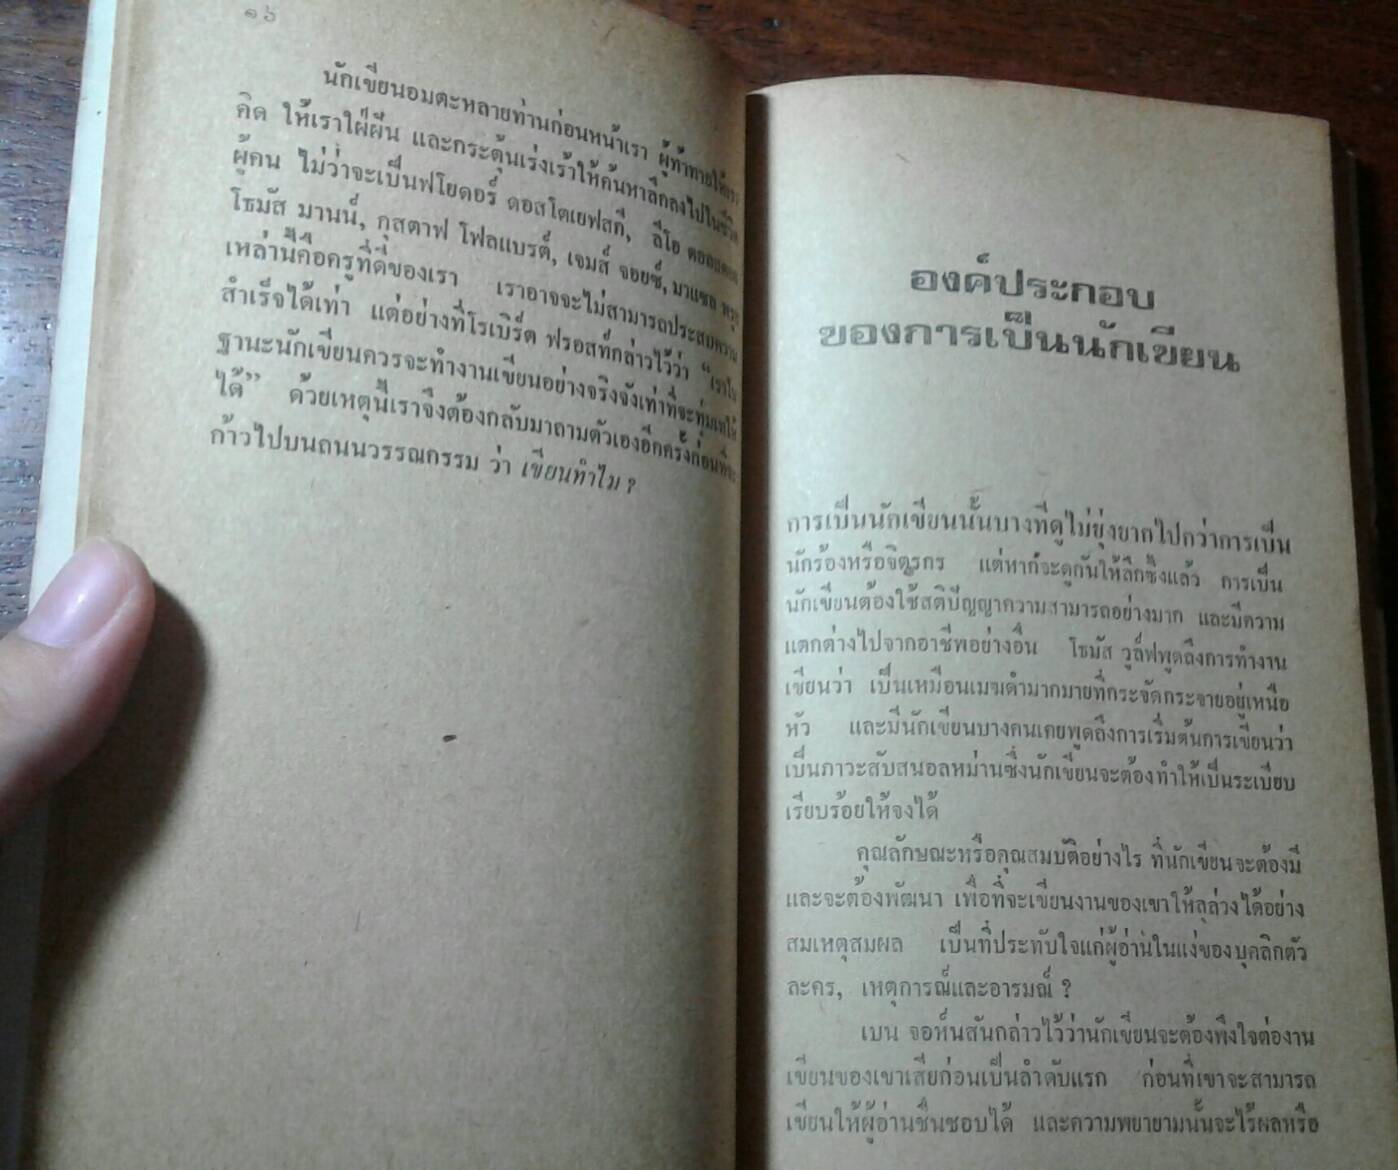 ๑๖
นักเขียนอมตะหลายท่านก่อนหน้าเรา ผู้ท้าทายให้เรา
คิด ให้เราใฝ่ฝัน และกระตุ้นเร่งเร้าให้ค้นหาลึกลงไปในชีวิต
ผู้คน ไม่ว่าจะเป็นฟโยดอร์ ดอสโตเยฟสกี, ลีโอ ตอลสตอย
โธมัส มานน์, กุสตาฟ โฟลแบรต์, เจมส์ จอยซ์, มาแซล พรูส
เหล่านี้คือครูที่ดีของเรา เราอาจจะไม่สามารถประสบความ
สำเร็จได้เท่า แต่อย่างที่โรเบิร์ต ฟรอสท์กล่าวไว้ว่า “เราใน
ฐานะนักเขียนควรจะทำงานเขียนอย่างจริงจังเท่าที่จะทุ่มเทให้
ได้” ด้วยเหตุนี้เราจึงต้องกลับมาถามตัวเองอีกครั้งก่อนที่จะ
ก้าวไปบนถนนวรรณกรรม ว่า เขียนทำไม ?
องค์ประกอบ
ของการเป็นนักเขียน
การเป็นนักเขียนนั้นบางทีดูไม่ยุ่งยากไปกว่าการเป็น
นักร้องหรือจิตรกร แต่หากจะดูกันให้ลึกซึ้งแล้ว การเป็น
นักเขียนต้องใช้สติปัญญาความสามารถอย่างมาก และมีความ
แตกต่างไปจากอาชีพอย่างอื่น โธมัส วูล์ฟพูดถึงการทำงาน
เขียนว่า เป็นเหมือนเมฆดำมากมายที่กระจัดกระจายอยู่เหนือ
หัว และมีนักเขียนบางคนเคยพูดถึงการเริ่มต้นการเขียนว่า
เป็นภาวะสับสนอลหม่านซึ่งนักเขียนจะต้องทำให้เป็นระเบียบ
เรียบร้อยให้จงได้
คุณลักษณะหรือคุณสมบัติอย่างไร ที่นักเขียนจะต้องมี
และจะต้องพัฒนา เพื่อที่จะเขียนงานของเขาให้ลุล่วงได้อย่าง
สมเหตุสมผล เป็นที่ประทับใจแก่ผู้อ่านในแง่ของบุคลิกตัว
ละคร, เหตุการณ์และอารมณ์ ?
เบน จอห์นสันกล่าวไว้ว่านักเขียนจะต้องพึงใจต่องาน
เขียนของเขาเสียก่อนเป็นลำดับแรก ก่อนที่เขาจะสามารถ
เขียนให้ผู้อ่านชื่นชอบได้ และความพยายามนั้นจะไร้ผลหรือ